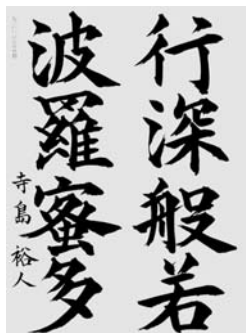 行深般若
波羅蜜多
寺島裕人